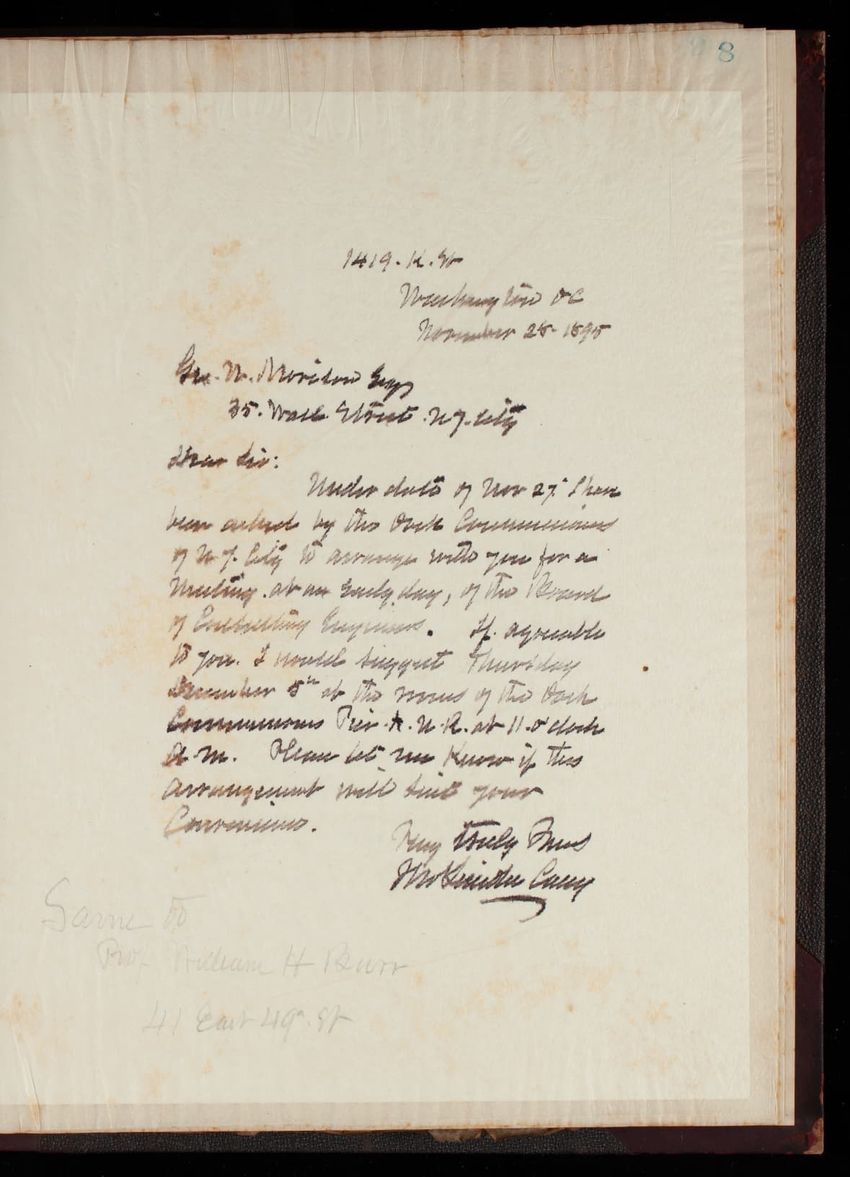 8
1419. K. St
Washington DC
November 28 1895
Geo. S. Morison Esq
35. Wall Street. N.Y. City
Dear Sir:
Under date of Nov 27" I have
been asked by the Dock Commissioners
of N.Y. City to arrange with you for a
Meeting. at an Early day, of the Board
of Consulting Engineers. If agreeable
to you. I would suggest Thursday
December 5th at the rooms of the Dock
Commissioners Pier A. N. R. at 11. o'clock
A. M. Please let me Know if this
arrangement will suit your
Convenience.
Very truly Yours
Thos Lincoln Casey
Same to
Prof William H Burr
41 East 49th. St